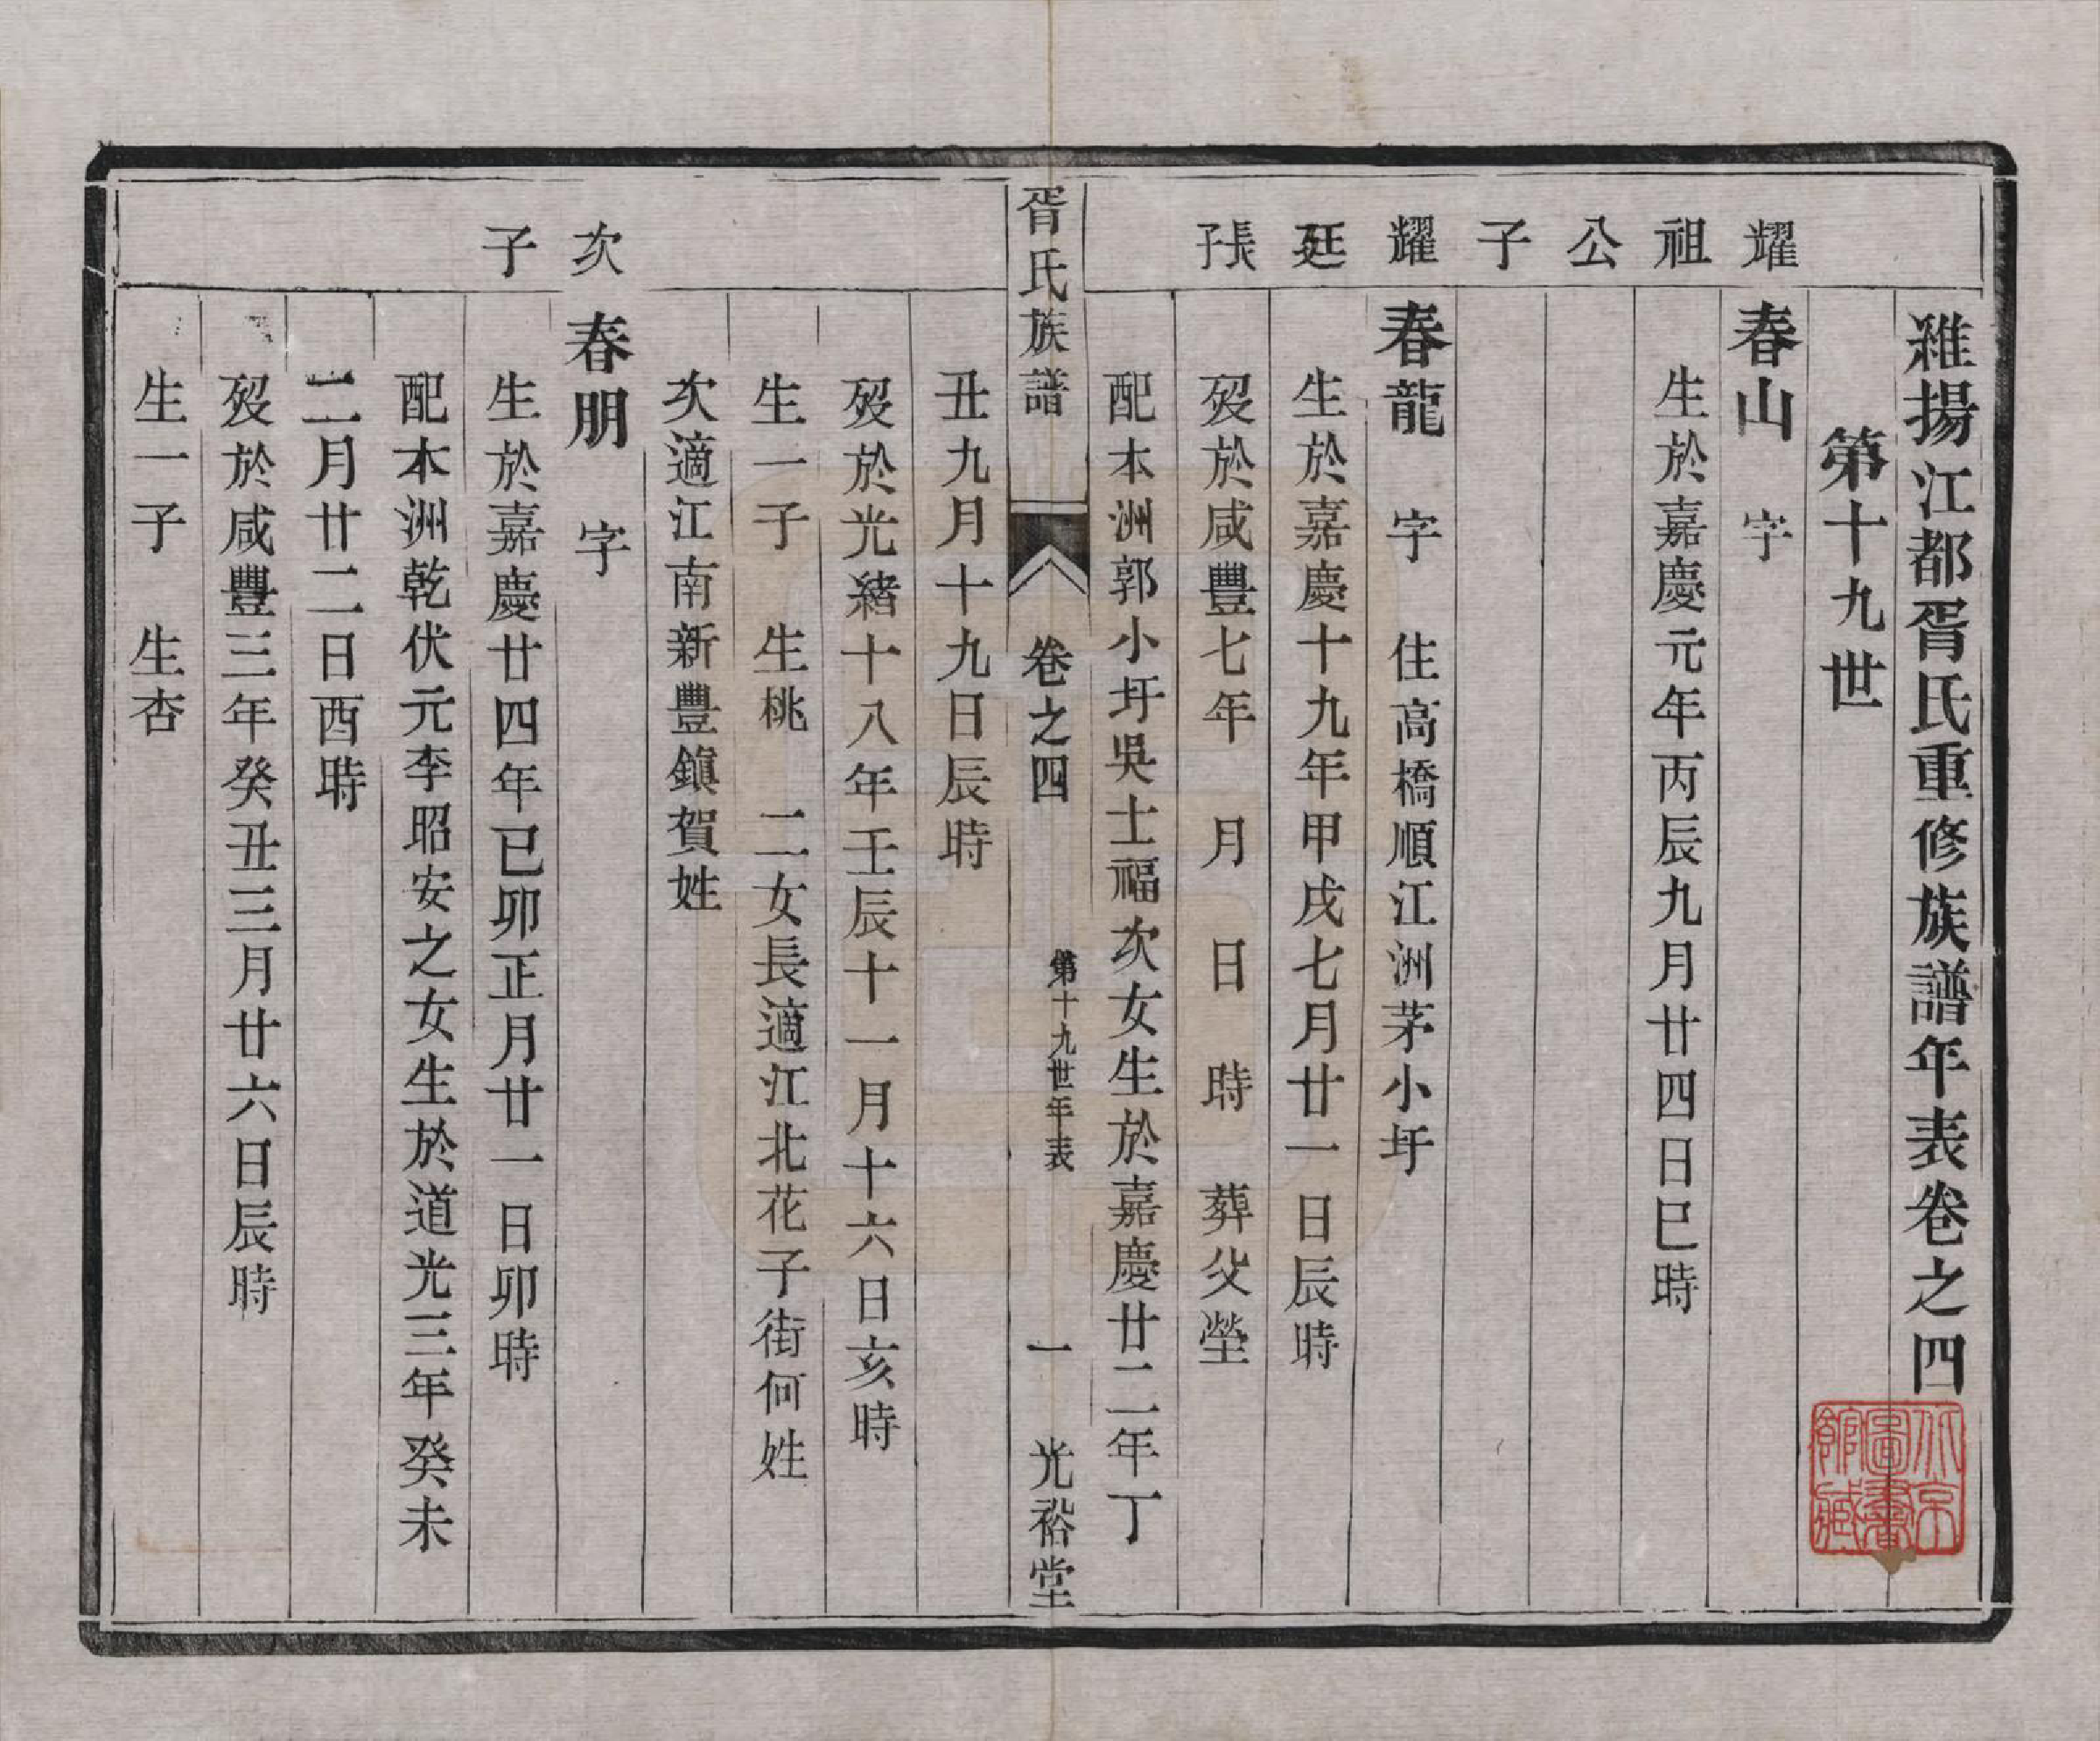 維揚江都胥氏重修族譜年表卷之四
第十九世
耀祖公子
春山 字
生於嘉慶元年丙辰九月廿四日巳時
耀廷長子
春龍 字 住高橋順江洲茅小圩
生於嘉慶十九年甲戌七月廿一日辰時
歿於咸豐七年 月 日 時 葬父塋
配本洲郭小圩吳士福次女生於嘉慶廿二年丁
胥氏族譜 卷之四 第十九世年表 一 光裕堂
丑九月十九日辰時
歿於光緒十八年壬辰十一月十六日亥時
生一子 生桃 二女長適江北花子街何姓
次適江南新豐鎮賀姓
次子
春朋 字
生於嘉慶廿四年已卯正月廿一日卯時
配本洲乾伏元李昭安之女生於道光三年癸未
二月廿二日酉時
歿於咸豐三年癸丑三月廿六日辰時
生一子 生杏
北京圖書館藏